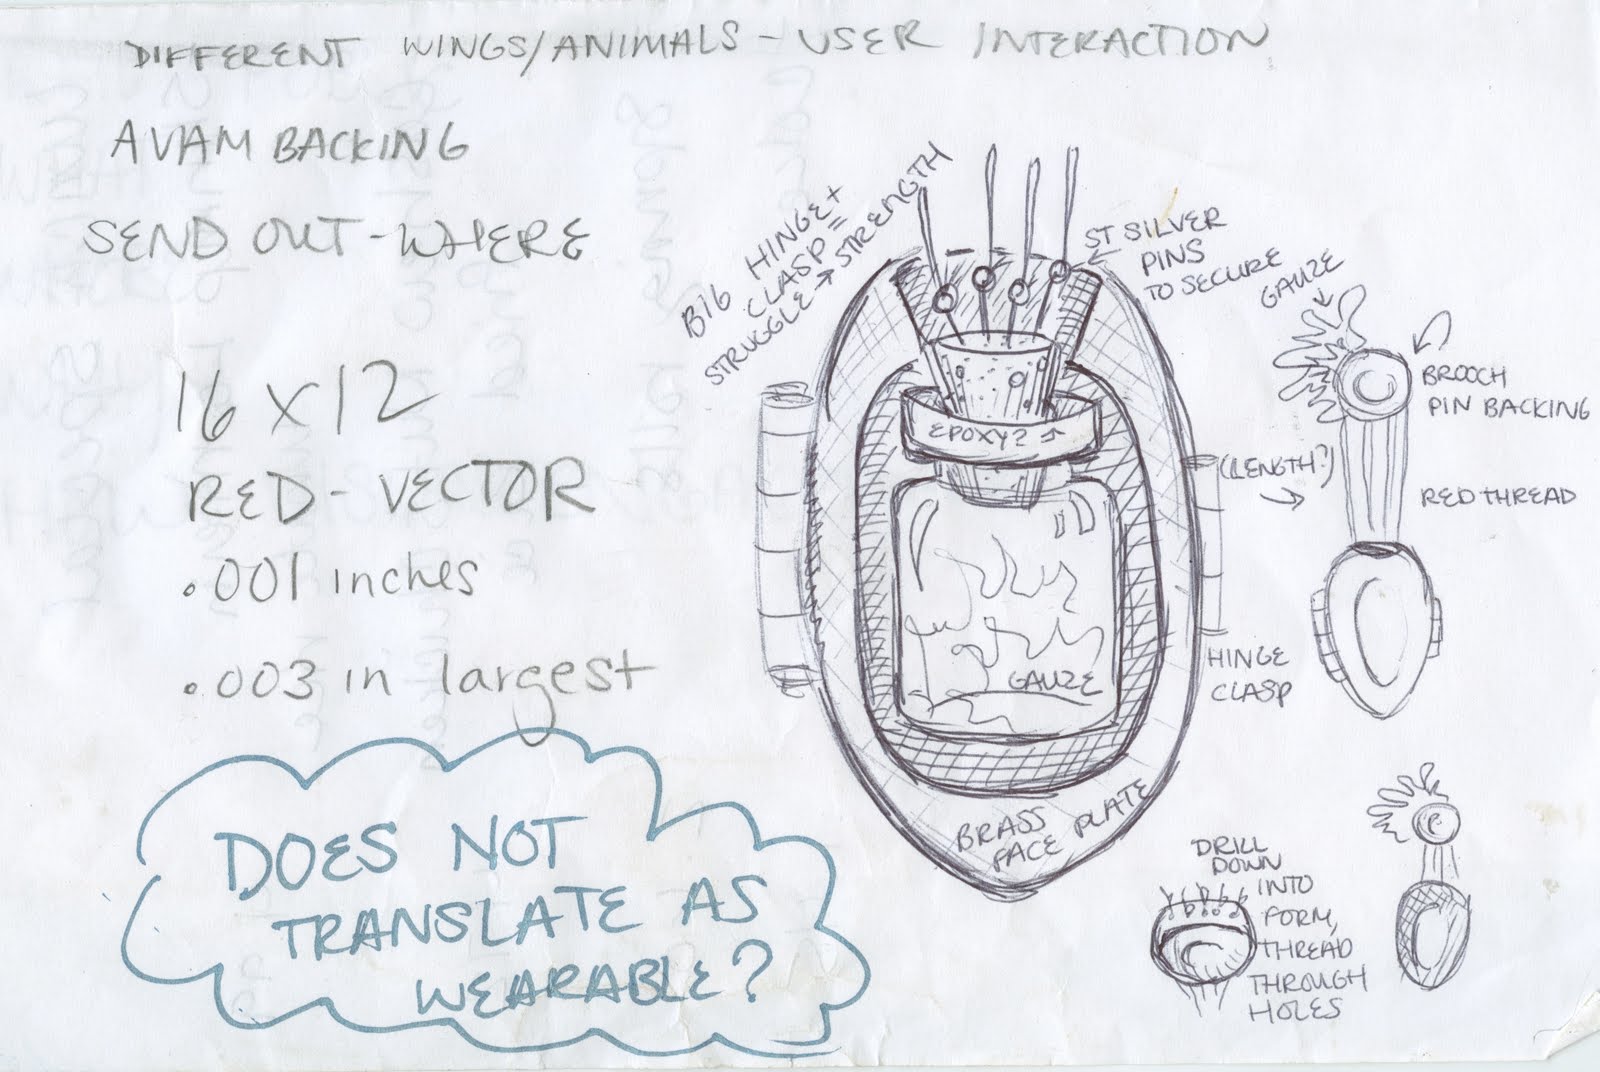 DIFFERENT WINGS/ANIMALS - USER INTERACTION
AVAM BACKING
SEND OUT - WHERE
16 X 12
RED - VECTOR
.001 inches
.003 in largest
DOES NOT
TRANSLATE AS
WEARABLE?
BIG HINGE +
CLASP =
STRUGGLE → STRENGTH
ST SILVER
PINS
TO SECURE
GAUZE
BROOCH
PIN BACKING
(LENGTH?)
RED THREAD
EPOXY?
GAUZE
HINGE
CLASP
BRASS
FACE PLATE
DRILL
DOWN
INTO
FORM,
THREAD
THROUGH
HOLES